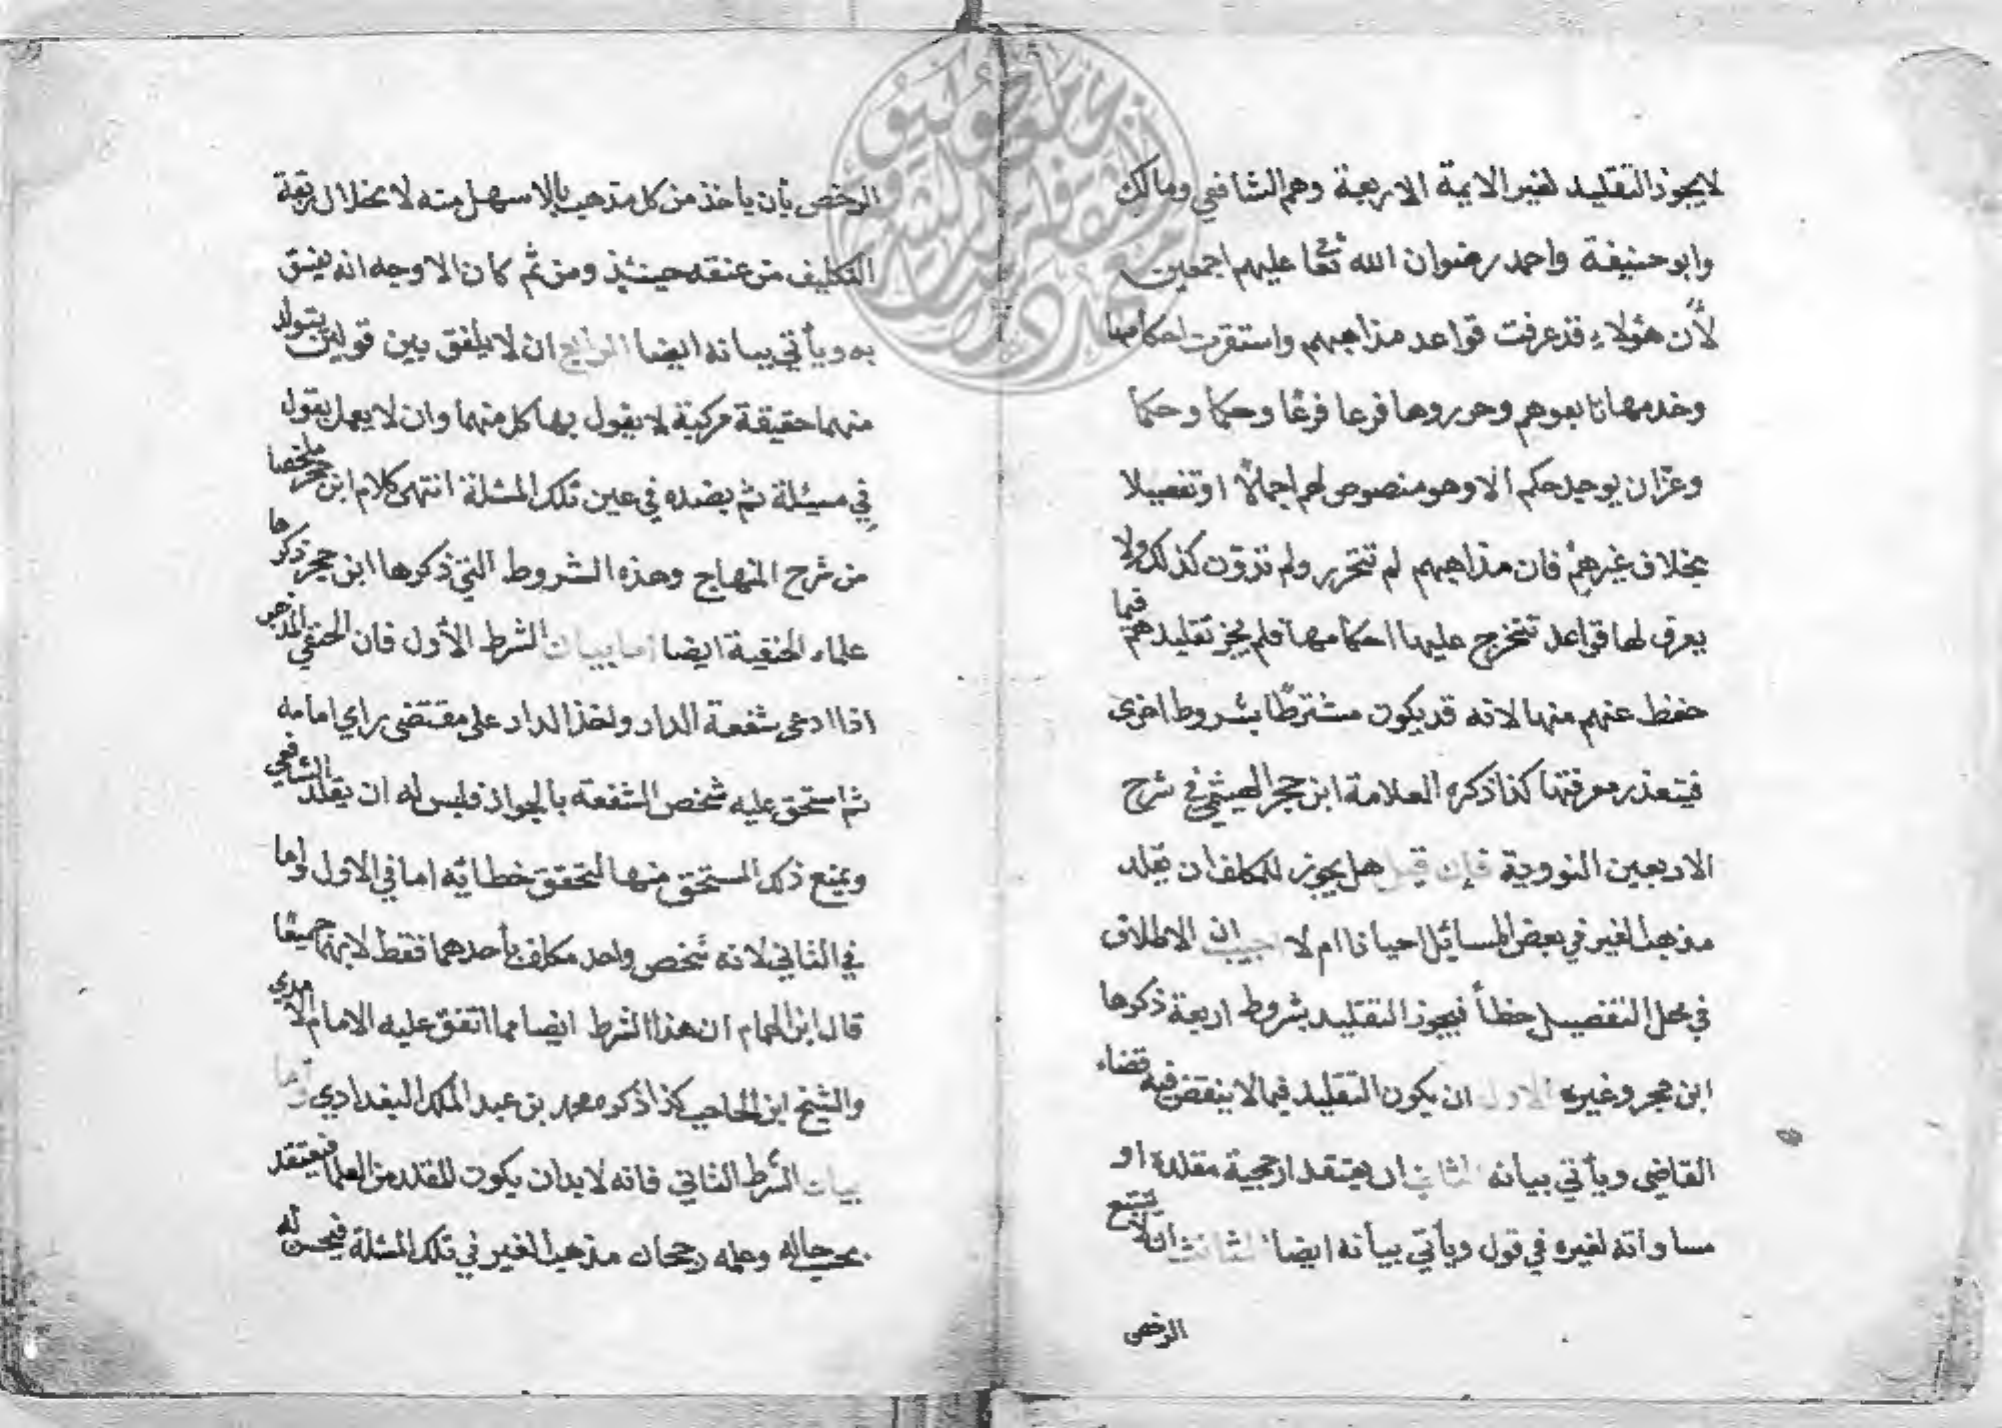 لا يجوز التقليد لغير الايمة الاربعة وهم الشافعي ومالك
وابو حنيفة واحمد رضوان الله تعا عليهم اجمعين
لأن هؤلاء قد عرفت قواعد مذاهبهم واستقرت احكامها
وخدمها تابعوهم وحرروها فرعا فرعًا وحكمًا وحكمًا
وعزّان يوجد حكم الا وهو منصوص لهم اجمالًا او تفصيلا
بخلاف غيرهم فان مذاهبهم لم تتحرر ولم تدوّن كذلك ولا
يعرف لها قواعد تتخرج عليها احكامها فلم يجز تقليدهم فيما
حفظ عنهم منها لانه قد يكون مشترطًا بشروط اخرى
فيتعذر معرفتها كذا ذكره العلامة ابن حجر الهيثمي في شرح
الاربعين النووية فإن قيل هل يجوز للمكلف ان يقلد
مذهب الغير في بعض المسائل احيانا ام لا اجيب ان الاطلاق
في محل التفصيل خطأ فيجوز التقليد بشروط اربعة ذكرها
ابن حجر وغيره الاول ان يكون التقليد فيما لا ينقض فيه قضاء
القاضي ويأتي بيانه الثاني ان يعتقد ارجحية مقلده او
مساواته لغيره في قول ويأتي بيانه ايضا الثالث ان لا يتتبع
الرخص
الرخص بأن يأخذ من كل مذهب بالاسهل منه لانحلال ربقة
التكليف من عنقه حينئذ ومن ثم كان الاوجه انه يفسق
به ويأتي بيانه ايضا الرابع ان لا يلفق بين قولين يتولد
منهما حقيقة مركبة لا يقول بها كل منهما وان لا يعمل بقول
في مسئلة ثم بضده في عين تلك المسئلة انتهى كلام ابن حجر ملخصا
من شرح المنهاج وهذه الشروط التي ذكرها ابن حجر ذكرها
علماء الحنفية ايضا اما بيان الشرط الأول فان الحنفي المذهب
اذا ادعى شفعة الدار واخذ الدار على مقتضى رأي امامه
ثم استحق عليه شخص الشفعة بالجوار فليس له ان يقلد الشافعي
ويمنع ذلك المستحق منها لتحقق خطائه اما في الاول واما
في الثاني لانه شخص واحد مكلف بأحدهما فقط لا بهما جميعًا
قال ابن الهمام ان هذا الشرط ايضا مما اتفق عليه الامام الآمدي
والشيخ ابن الحاجب كذا ذكره محمد بن عبد الملك البغدادي وأما
بيان الشرط الثاني فانه لا بد ان يكون المقلد من العلما فيعتقد
بحسب حاله وعلمه رجحان مذهب الغير في تلك المسئلة فيحسن له